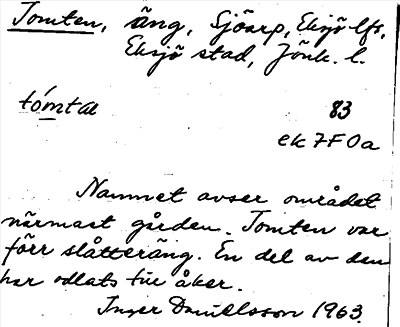 Tomten, äng, Sjöarp, Eksjö lfs,
Eksjö stad, Jönk. l.
tómtæ
83
ek 7F0a
Namnet avser området
närmast gården. Tomten var
förr slåtteräng. En del av den
har odlats till åker.
Inger Danielsson 1963.